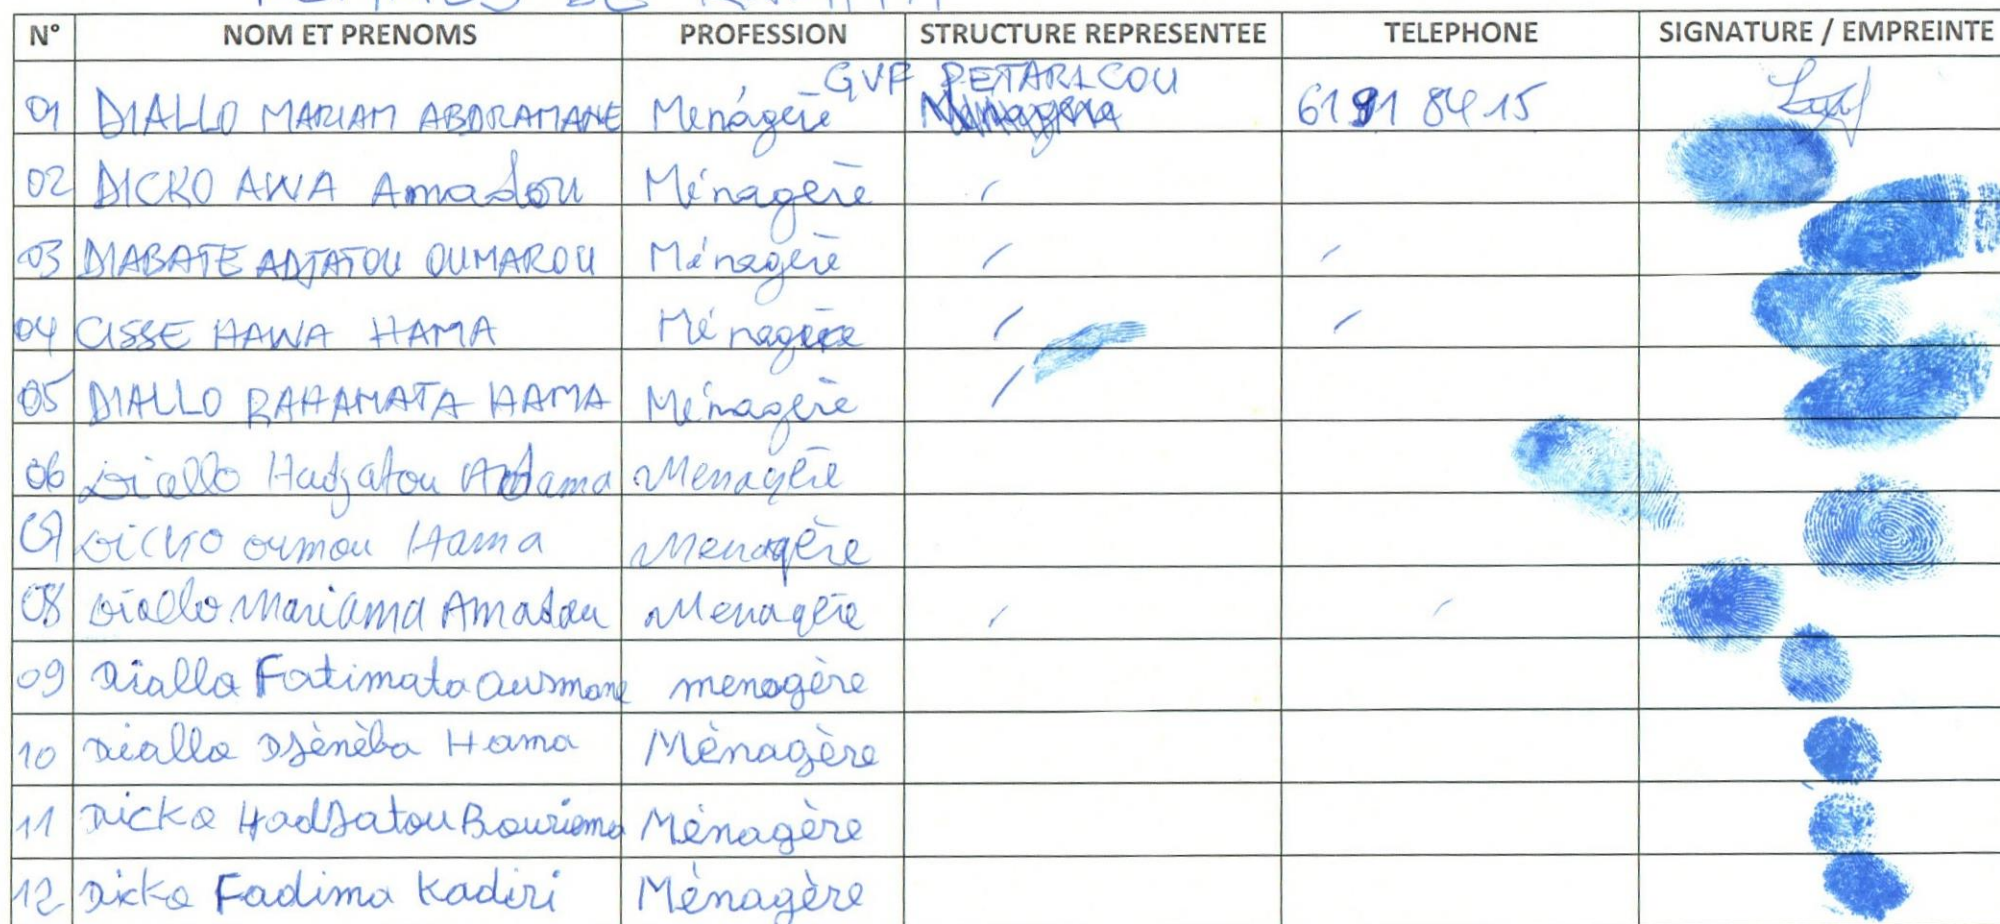 N° NOM ET PRENOMS PROFESSION STRUCTURE REPRESENTEE TELEPHONE SIGNATURE / EMPREINTE
01 DIALLO MARIAM ABDRAMANE Menágère GVF PETARICOU 61 91 84 15
02 DICKO AWA Amadou Ménagère /
03 DIABATE ADJATOU OUMAROU Ménagère / /
04 CISSE HAWA HAMA Ménagère / /
05 DIALLO RAHAMATA HAMA Ménagère /
06 Diallo Hadjatou Adama Menagère
07 Dicko oumou Hama Menagère
08 Diallo Mariama Amadou Menagère / /
09 Diallo Fatimata Ousmane menagère
10 Diallo Djènèba Hama Mènagère
11 Dicko Hadjatou Bouriema Mènagère
12 Dicko Fadima Kadiri Mènagère